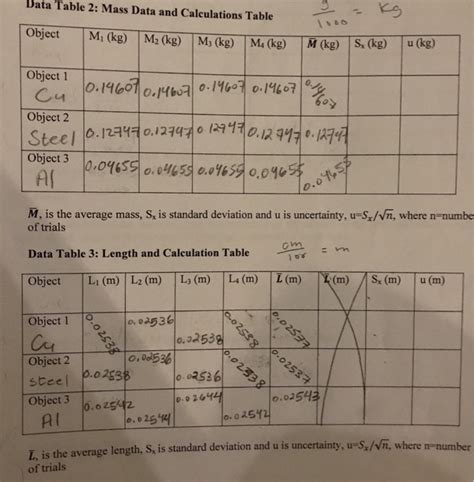 Data Table 2: Mass Data and Calculations Table
g/1000 = kg
Object M₁ (kg) M₂ (kg) M₃ (kg) M₄ (kg) M̅ (kg) Sₓ (kg) u (kg)
Object 1 Cu 0.14607 0.14607 0.14607 0.14607 0.14607
Object 2 Steel 0.12747 0.12747 0.12747 0.12747 0.12747
Object 3 Al 0.04655 0.04655 0.04655 0.04655 0.04655
M̅, is the average mass, Sₓ is standard deviation and u is uncertainty, u=Sₓ/√n, where n=numbe
of trials
cm/100 = m
Data Table 3: Length and Calculation Table
Object L₁ (m) L₂ (m) L₃ (m) L₄ (m) L̅ (m) (m) Sₓ (m) u (m)
Object 1 Cu 0.02538 0.02536 0.02538 0.02538 0.02537
Object 2 steel 0.02538 0.02536 0.02536 0.02538 0.02537
Object 3 Al 0.02542 0.02544 0.02644 0.02542 0.02543
L̅, is the average length, Sₓ is standard deviation and u is uncertainty, u=Sₓ/√n, where n=number
of trials